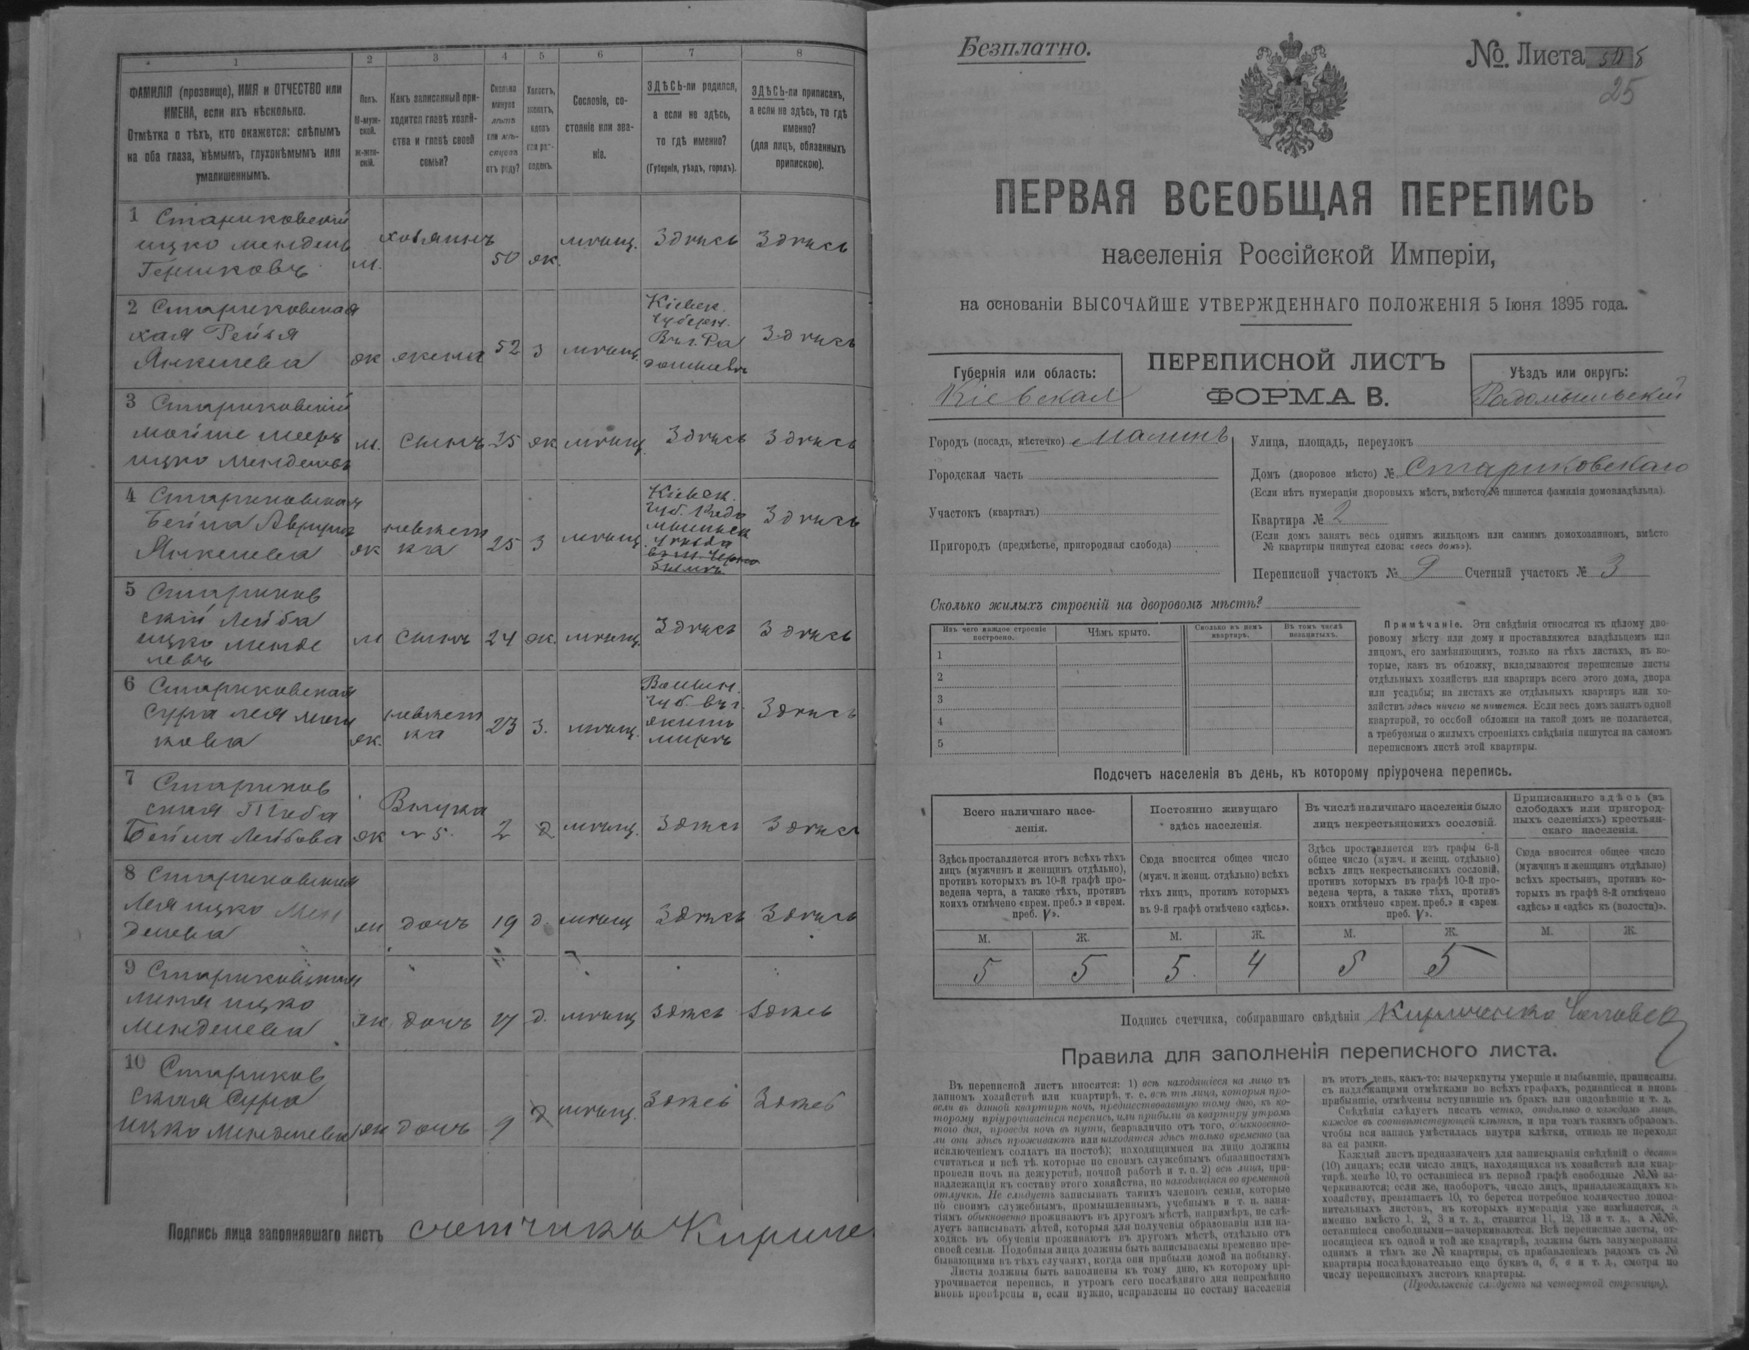 1 2 3 4 5 6 7 8
ФАМИЛІЯ (прозвище), ИМЯ и ОТЧЕСТВО или
ИМЕНА, если ихъ нѣсколько.
Отмѣтка о тѣхъ, кто окажется: слѣпымъ
на оба глаза, нѣмымъ, глухонѣмымъ или
умалишеннымъ.
Полъ.
М-муж-
ской.
Ж-жен-
скій.
Какъ записанный при-
ходится главѣ хозяй-
ства и главѣ своей
семьи?
Сколько
минуло
лѣтъ
или мѣ-
сяцевъ
отъ роду?
Холостъ,
женатъ,
вдовъ
или раз-
веденъ.
Сословіе, со-
стояніе или зва-
ніе.
ЗДѢСЬ-ли родился,
а если не здѣсь,
то гдѣ именно?
(Губернія, уѣздъ, городъ).
ЗДѢСЬ-ли приписанъ,
а если не здѣсь, то гдѣ
именно?
(для лицъ, обязанныхъ
припискою).
1 Стариковскій
ицко мендель
Гершковъ
м. хозяинъ 50 ж. мѣщ. Здѣсь Здѣсь
2 Стариковская
хая Рейзя
Янкелева
ж жена 52 з мѣщ.
Кіевск.
Губерн.
Здѣсь
3 Стариковскій
мойше мееръ
ицко Менделевъ
м. сынъ 25 ж мѣщ. Здѣсь Здѣсь
4 Стариковская
Бейла
Янкелева
ж невѣст
ка 25 з мѣщ.
Кіевск.
Губ.
уѣзда
Здѣсь
5 Стариков
скій Лейба
ицко менде
левъ
м сынъ 24 ж. мѣщ. Здѣсь Здѣсь
6 Стариковская
Сура лея
ж. невѣст
ка 23 з. мѣщ.
Волын.
Губ.
Здѣсь
7 Стариков
ская
Бейла Лейбова
ж Внучка
№ 5. 2 д мѣщ. Здѣсь Здѣсь
8 Стариковская
Лея ицко Мен
делева
ж дочь 19 д. мѣщ Здѣсь Здѣсь
9 Стариковская
ицко
Менделева
ж. дочь д. мѣщ Здѣсь Здѣсь
10 Стариков
ская Сура
ицко Менделева
ж дочь 9 д мѣщ. Здѣсь Здѣсь
Подпись лица заполнявшаго листъ счетчикъ
Безплатно.
№. Листа
25
ПЕРВАЯ ВСЕОБЩАЯ ПЕРЕПИСЬ
населенія Россійской Имперіи,
на основаніи ВЫСОЧАЙШЕ УТВЕРЖДЕННАГО ПОЛОЖЕНІЯ 5 Іюня 1895 года.
Губернія или область:
Кіевская
ПЕРЕПИСНОЙ ЛИСТЪ
ФОРМА В.
Уѣздъ или округъ:
Радомысльскій
Городъ (посадъ, мѣстечко) м Малинъ
Городская часть
Участокъ (кварталъ)
Пригородъ (предмѣстье, пригородная слобода)
Улица, площадь, переулокъ
Домъ (дворовое мѣсто) № Стариковскаго
(Если нѣтъ нумераціи дворовыхъ мѣстъ, вмѣсто № пишется фамилія домовладѣльца).
Квартира № 2
(Если домъ занятъ весь однимъ жильцомъ или самимъ домохозяиномъ, вмѣсто
№ квартиры пишутся слова: «весь домъ»).
Переписной участокъ № 9 Счетный участокъ № 3
Сколько жилыхъ строеній на дворовомъ мѣстѣ?
Изъ чего каждое строеніе
построено.
Чѣмъ крыто.
Сколько въ немъ
квартиръ.
Въ томъ числѣ
незанятыхъ.
1
2
3
4
5
Примѣчаніе. Эти свѣдѣнія относятся къ цѣлому дво-
ровому мѣсту или дому и проставляются владѣльцемъ или
лицомъ, его замѣняющимъ, только на тѣхъ листахъ, въ ко-
торые, какъ въ обложку, вкладываются переписные листы
отдѣльныхъ хозяйствъ или квартиръ всего этого дома, двора
или усадьбы; на листахъ же отдѣльныхъ квартиръ или хо-
зяйствъ здѣсь ничего не пишется. Если весь домъ занятъ одной
квартирой, то особой обложки на такой домъ не полагается,
а требуемыя о жилыхъ строеніяхъ свѣдѣнія пишутся на самомъ
переписномъ листѣ этой квартиры.
Подсчетъ населенія въ день, къ которому пріурочена перепись.
Всего наличнаго насе-
ленія.
Постоянно живущаго
здѣсь населенія.
Въ числѣ наличнаго населенія было
лицъ некрестьянскихъ сословій.
Приписаннаго здѣсь (въ
слободахъ или пригород-
ныхъ селеніяхъ) крестьян-
скаго населенія.
Здѣсь проставляется итогъ всѣхъ тѣхъ
лицъ (мужчинъ и женщинъ отдѣльно),
противъ которыхъ въ 10-й графѣ про-
ведена черта, а также тѣхъ, противъ
коихъ отмѣчено «врем. преб.» и «врем.
преб. V».
Сюда вносится общее число
(мужч. и женщ. отдѣльно) всѣхъ
тѣхъ лицъ, противъ которыхъ
въ 9-й графѣ отмѣчено «здѣсь».
Здѣсь проставляется изъ графы 6-й
общее число (мужч. и женщ. отдѣльно)
всѣхъ лицъ некрестьянскихъ сословій,
противъ которыхъ въ графѣ 10-й про-
ведена черта, а также тѣхъ, противъ
коихъ отмѣчено «врем. преб.» и «врем.
преб. V».
Сюда вносится общее число
(мужчинъ и женщинъ отдѣльно)
всѣхъ крестьянъ, противъ ко-
торыхъ въ графѣ 8-й отмѣчено
«здѣсь» и «здѣсь къ (волости)».
М. Ж. М. Ж. М. Ж. М. Ж.
5 5 5. 4 5 5
Подпись счетчика, собиравшаго свѣдѣнія
Правила для заполненія переписного листа.
Въ переписной листъ вносятся: 1) всѣ находящіеся на лицо въ
данномъ хозяйствѣ или квартирѣ, т. е. всѣ тѣ лица, которыя про-
вели въ данной квартирѣ ночь, предшествовавшую тому дню, къ ко-
торому пріурочивается перепись, или прибыли въ квартиру утромъ
того дня, проведя ночь въ пути, безразлично отъ того, обыкновенно-
ли они здѣсь проживаютъ или находятся здѣсь только временно (за
исключеніемъ солдатъ на постоѣ); находящимися на лицо должны
считаться и всѣ тѣ, которые по своимъ служебнымъ обязанностямъ
провели ночь на дежурствѣ, ночной работѣ и т. п. 2) всѣ лица, при-
надлежащія къ составу этого хозяйства, но находящіяся во временной
отлучкѣ. Не слѣдуетъ записывать такихъ членовъ семьи, которые
по своимъ служебнымъ, промышленнымъ, учебнымъ и т. п. заня-
тіямъ обыкновенно проживаютъ въ другомъ мѣстѣ, напримѣръ, не слѣ-
дуетъ записывать дѣтей, которыя для полученія образованія или на-
ходясь въ обученіи проживаютъ въ другомъ мѣстѣ, отдѣльно отъ
своей семьи. Подобныя лица должны быть записываемы временно пре-
бывающими въ тѣхъ случаяхъ, когда они прибыли домой на побывку.
Листы должны быть заполнены къ тому дню, къ которому прі-
урочивается перепись, и утромъ сего послѣдняго дня непремѣнно
вновь провѣрены и, если нужно, исправлены по составу населенія
въ этотъ день, какъ-то: вычеркнуты умершіе и выбывшіе, приписаны,
съ надлежащими отмѣтками во всѣхъ графахъ, родившіеся и вновь
прибывшіе, отмѣчены вступившіе въ бракъ или овдовѣвшіе и т. д.
Свѣдѣнія слѣдуетъ писать четко, отдѣльно о каждомъ лицѣ,
каждое въ соотвѣтствующей клѣткѣ, и при томъ такимъ образомъ,
чтобы вся запись умѣстилась внутри клѣтки, отнюдь не переходя
за ея рамки.
Каждый листъ предназначенъ для записыванія свѣдѣній о десяти
(10) лицахъ; если число лицъ, находящихся въ хозяйствѣ или квар-
тирѣ, менѣе 10, то оставшіеся въ первой графѣ свободные №№ за-
черкиваются; если же, наоборотъ, число лицъ, принадлежащихъ къ
хозяйству, превышаетъ 10, то берется потребное количество допол-
нительныхъ листовъ, въ которыхъ нумерація уже измѣняется, а
именно вмѣсто 1, 2, 3 и т. д., ставятся 11, 12, 13 и т. д., а №№,
оставшіеся свободными—зачеркиваются. Всѣ переписные листы, от-
носящіеся къ одной и той же квартирѣ, должны быть занумерованы
однимъ и тѣмъ же № квартиры, съ прибавленіемъ рядомъ съ №
квартиры послѣдовательно еще буквъ а, б, в и т. д., смотря по
числу переписныхъ листовъ квартиры.
(Продолженіе слѣдуетъ на четвертой страницѣ).